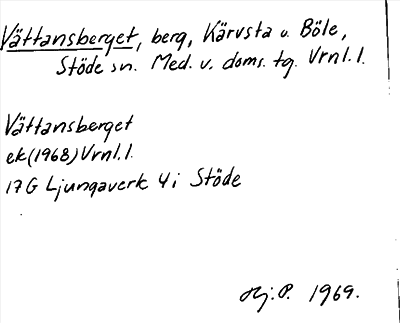 Vättansberget, berg, Kärvsta o. Böle,
Stöde sn. Med. v. doms. tg. Vrnl. l.
Vättansberget
ek (1968) Vrnl. l.
17G Ljungaverk 4i Stöde
Hj. P. 1969.